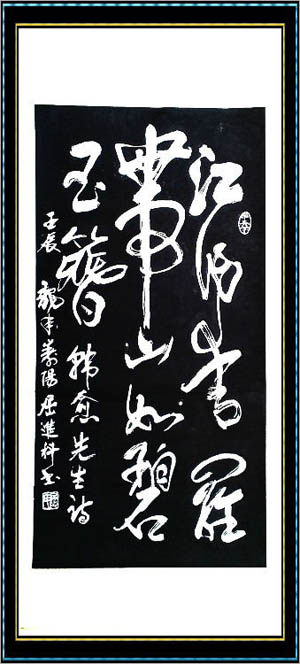 江作青羅
帶山如碧
玉簪韩愈先生诗
壬辰龍年陽進科书